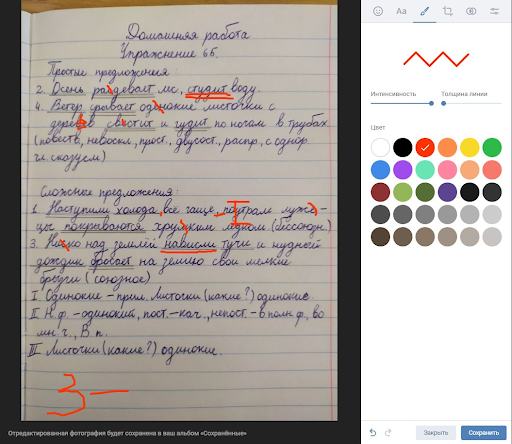 Домашняя работа
Упражнение 66.
Простые предложения:
2. Осень раздевает лес, студит воду.
4. Ветер срывает одинокие листочки с
деревьев свистит и гудит по ночам в трубах
(повеств., невоскл., прост., двусост., распр., с однор.
гл. сказуем)
Сложные предложения:
1. Наступили холода, всё чаще, по утрам лужи-
цы покрываются хрупким льдом (бессоюзн.)
3. Низко над землёй нависли тучи и нудный
дождик бросает на землю свои мелкие
брызги (союзное)
I Одинокие - прил. Листочки (какие?) одинокие.
II Н.ф. - одинокий, пост. - кач., непост. - в полн. ф., во
мн. ч., В. п.
III Листочки (какие?) одинокие.
3 —
Отредактированная фотография будет сохранена в ваш альбом «Сохранённые»
Aa
Интенсивность
Толщина линии
Цвет
Закрыть
Сохранить